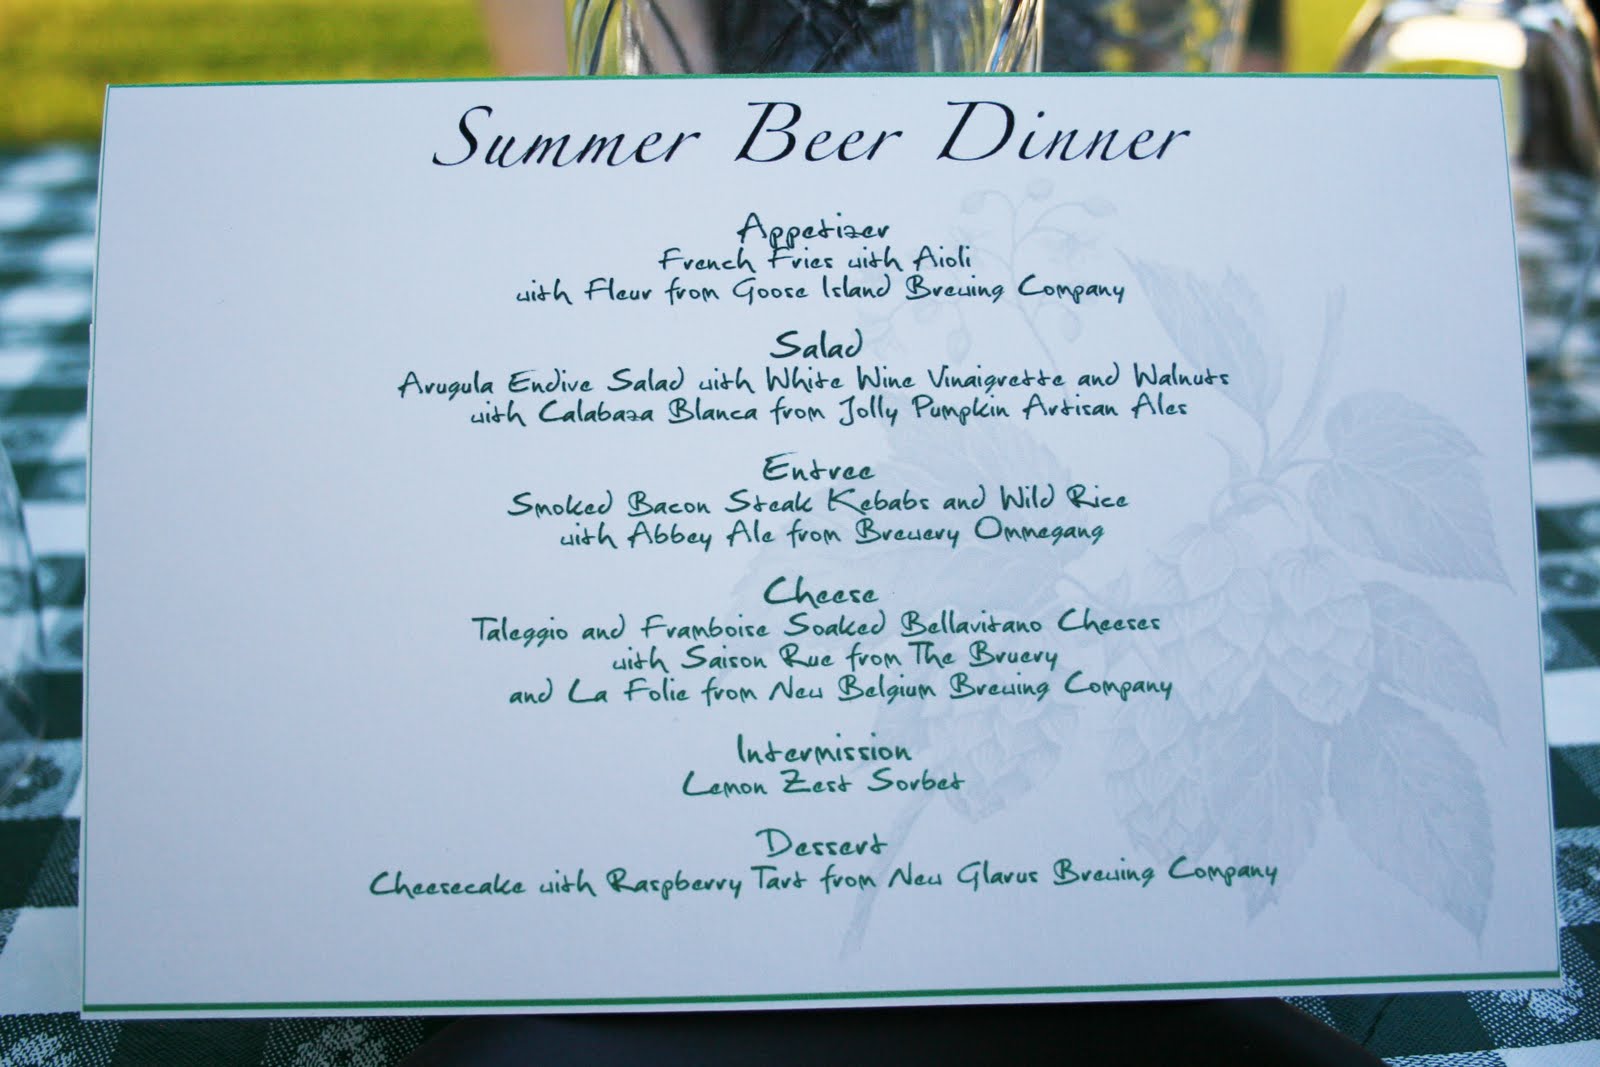 Summer Beer Dinner
Appetizer
French Fries with Aioli
with Fleur from Goose Island Brewing Company
Salad
Arugula Endive Salad with White Wine Vinaigrette and Walnuts
with Calabaza Blanca from Jolly Pumpkin Artisan Ales
Entree
Smoked Bacon Steak Kebabs and Wild Rice
with Abbey Ale from Brewery Ommegang
Cheese
Taleggio and Framboise Soaked Bellavitano Cheeses
with Saison Rue from The Bruery
and La Folie from New Belgium Brewing Company
Intermission
Lemon Zest Sorbet
Dessert
Cheesecake with Raspberry Tart from New Glarus Brewing Company